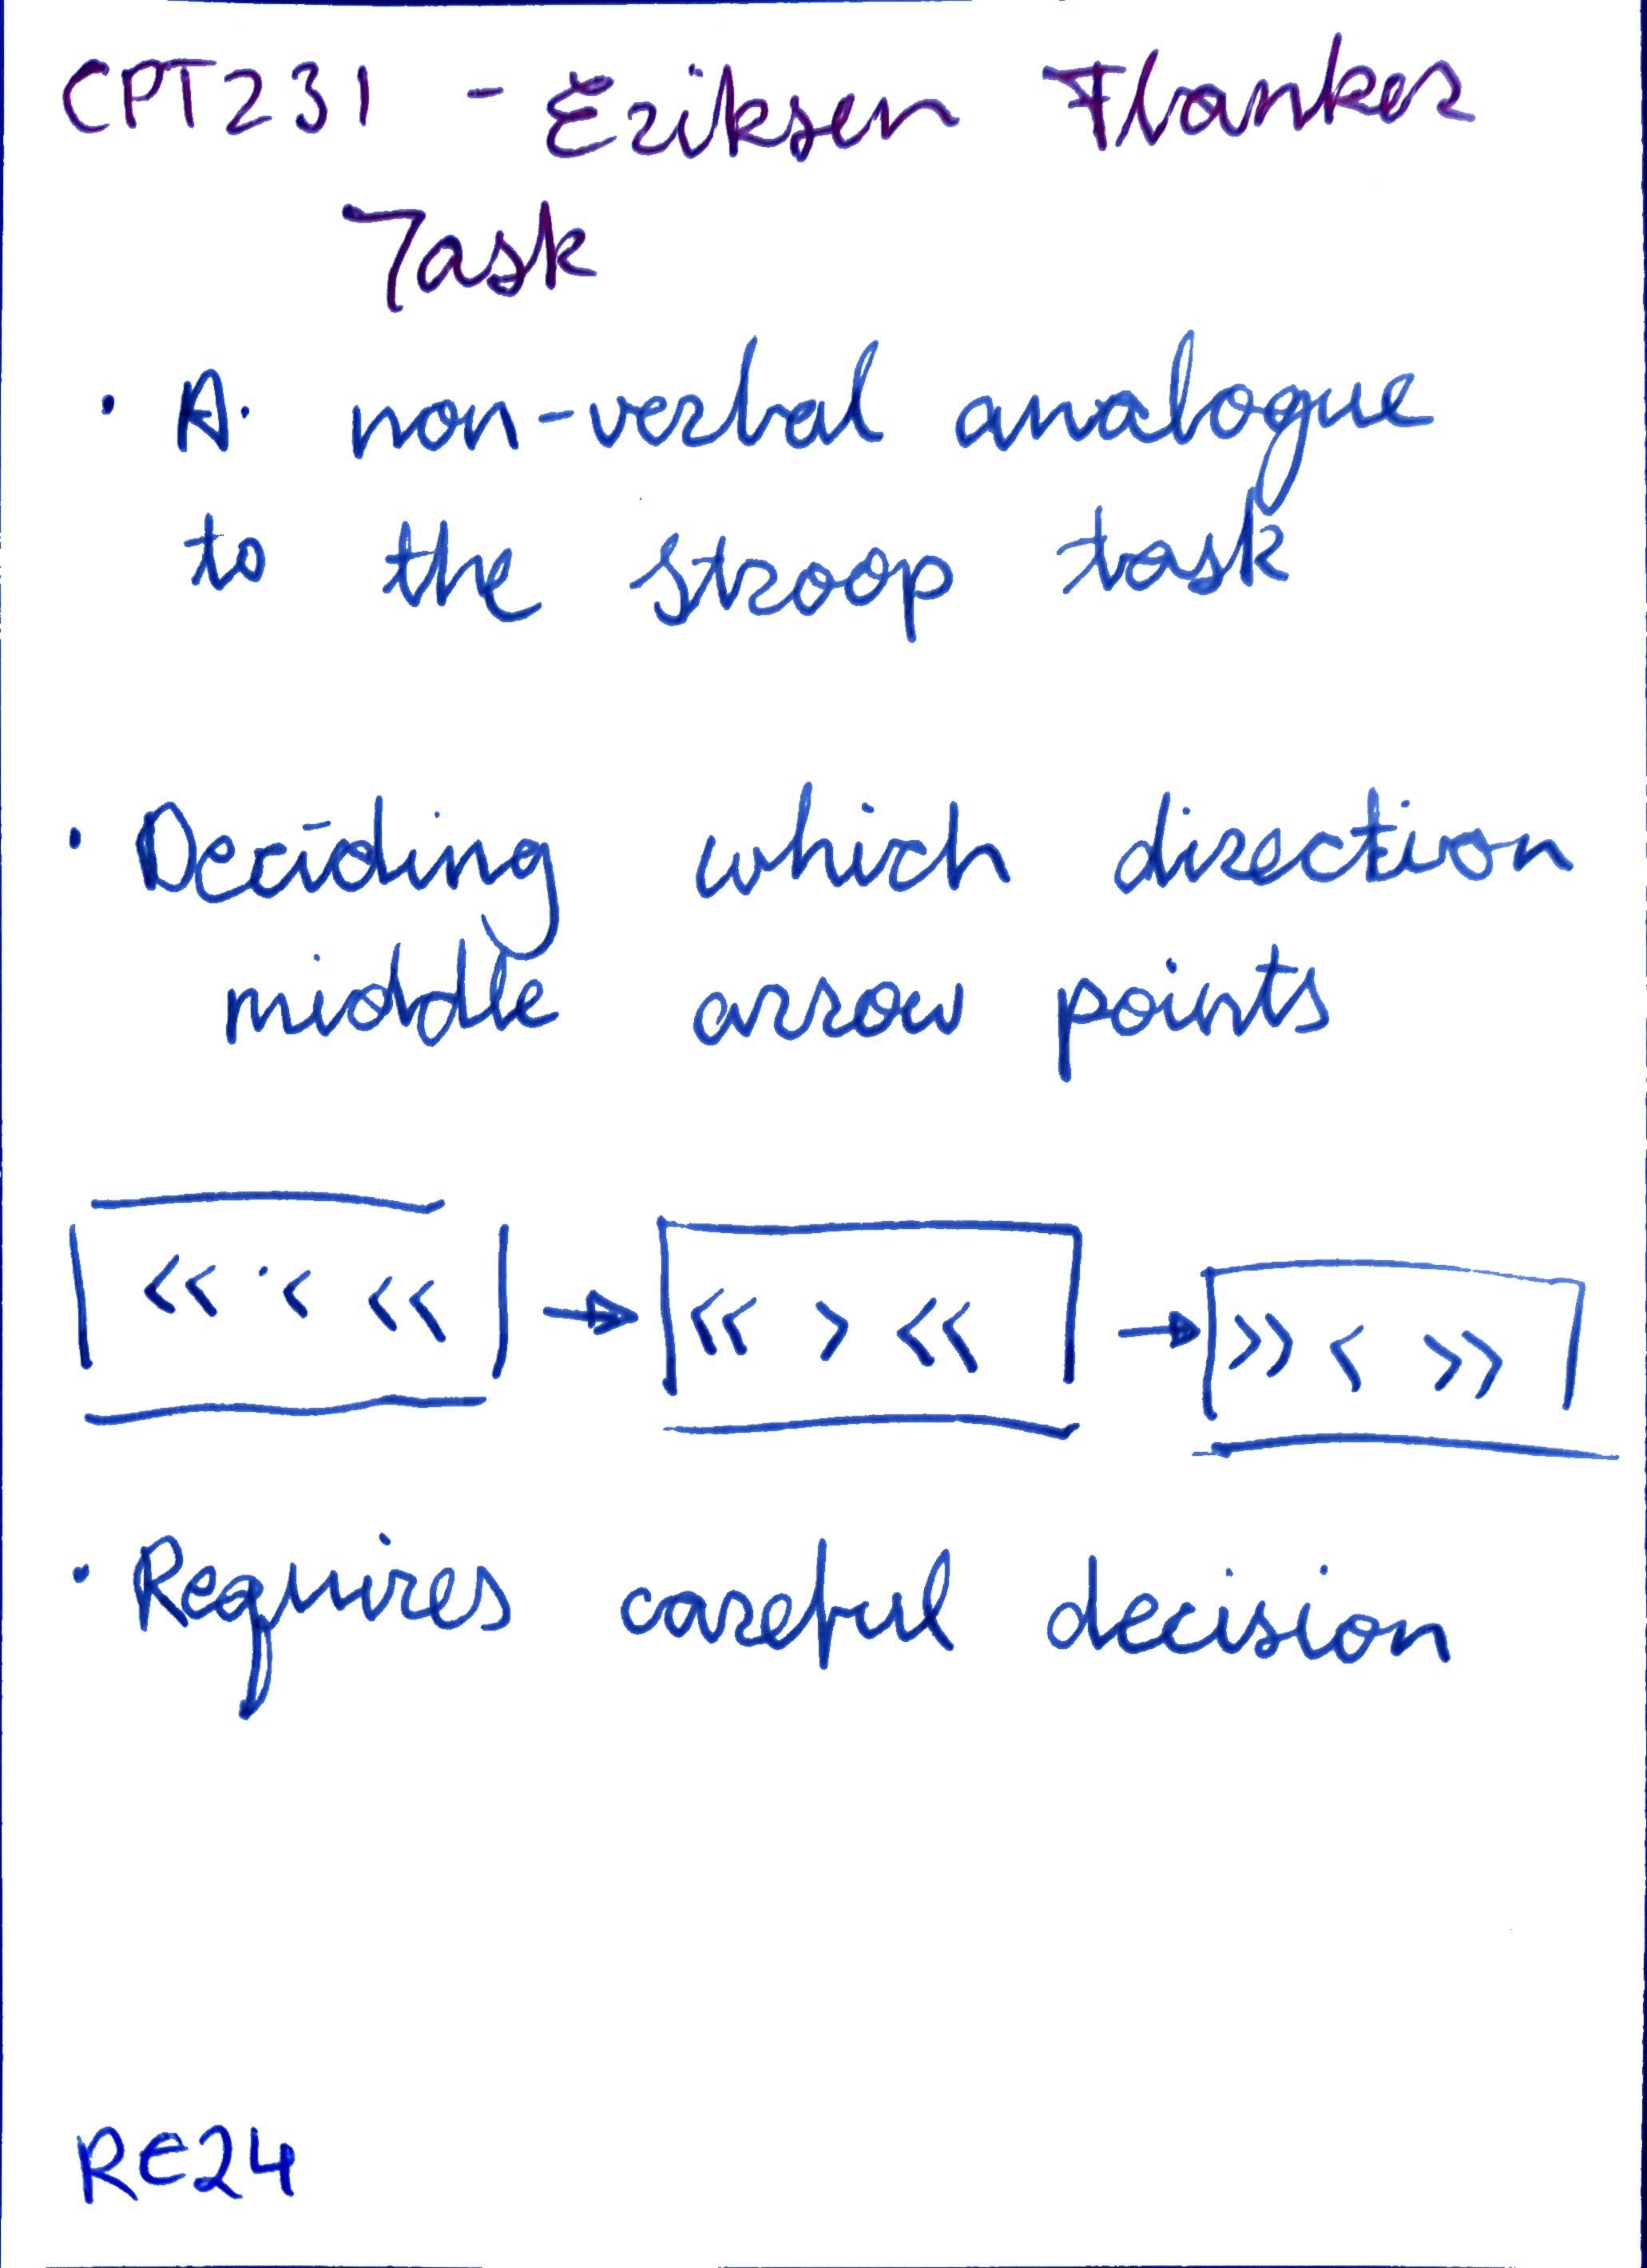 CPT231 - Eriksen Flanker
Task
· A. non-verbal analogue
to the stroop task
· Deciding which direction
middle arrow points
<< < << → << > << → >> < >>
· Requires careful decision
RE24